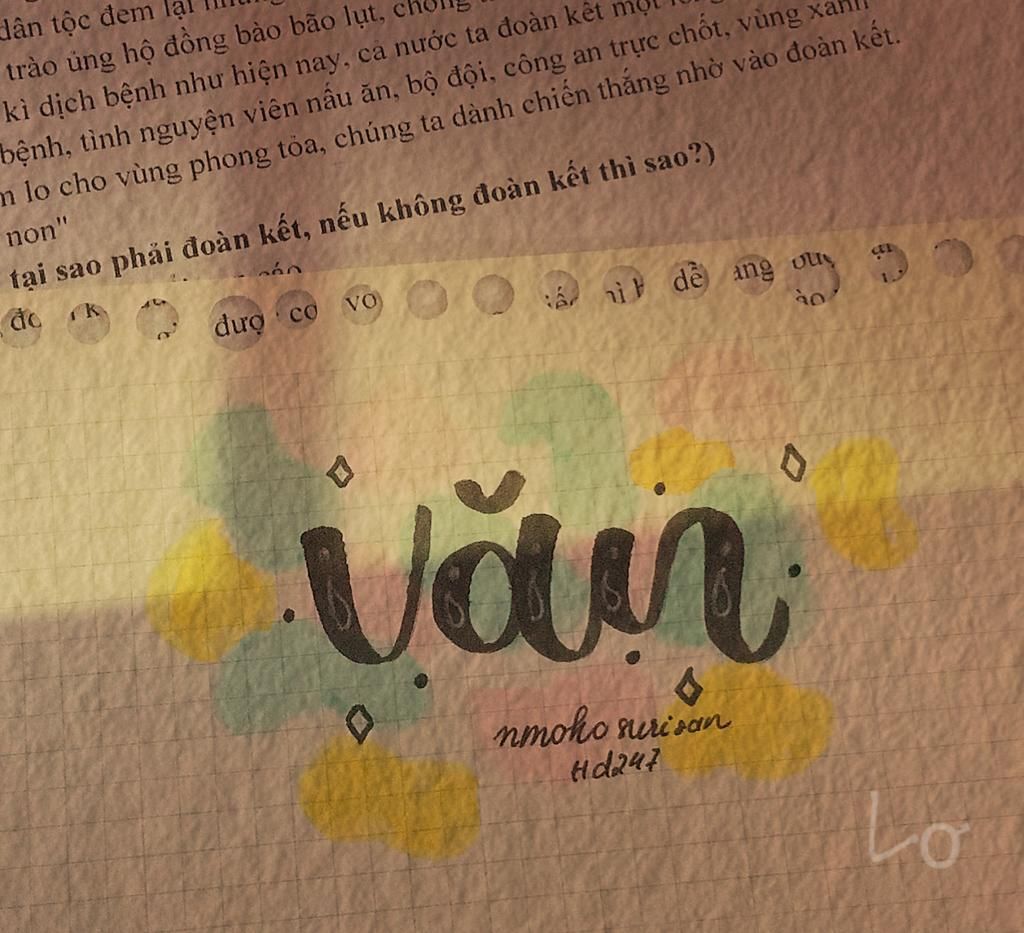 dân tộc đem lại
trào ủng hộ đồng bào bão lụt, chống
kì dịch bệnh như hiện nay, cả nước ta đoàn kết một
bệnh, tình nguyện viên nấu ăn, bộ đội, công an trực chốt, vùng xanh
lo cho vùng phong tỏa, chúng ta dành chiến thắng nhờ vào đoàn kết.
non"
tại sao phải đoàn kết, nếu không đoàn kết thì sao?)
vo dễ
văn
nmoho surisan
Hd247
Lơ